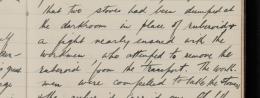 that two stoves had been dumped at
the darkroom in place of ruberoid &
a fight nearly ensued with the
workmen who attempted to remove the
ruberoid from the transport. The work-
men were compelled to take the stoves